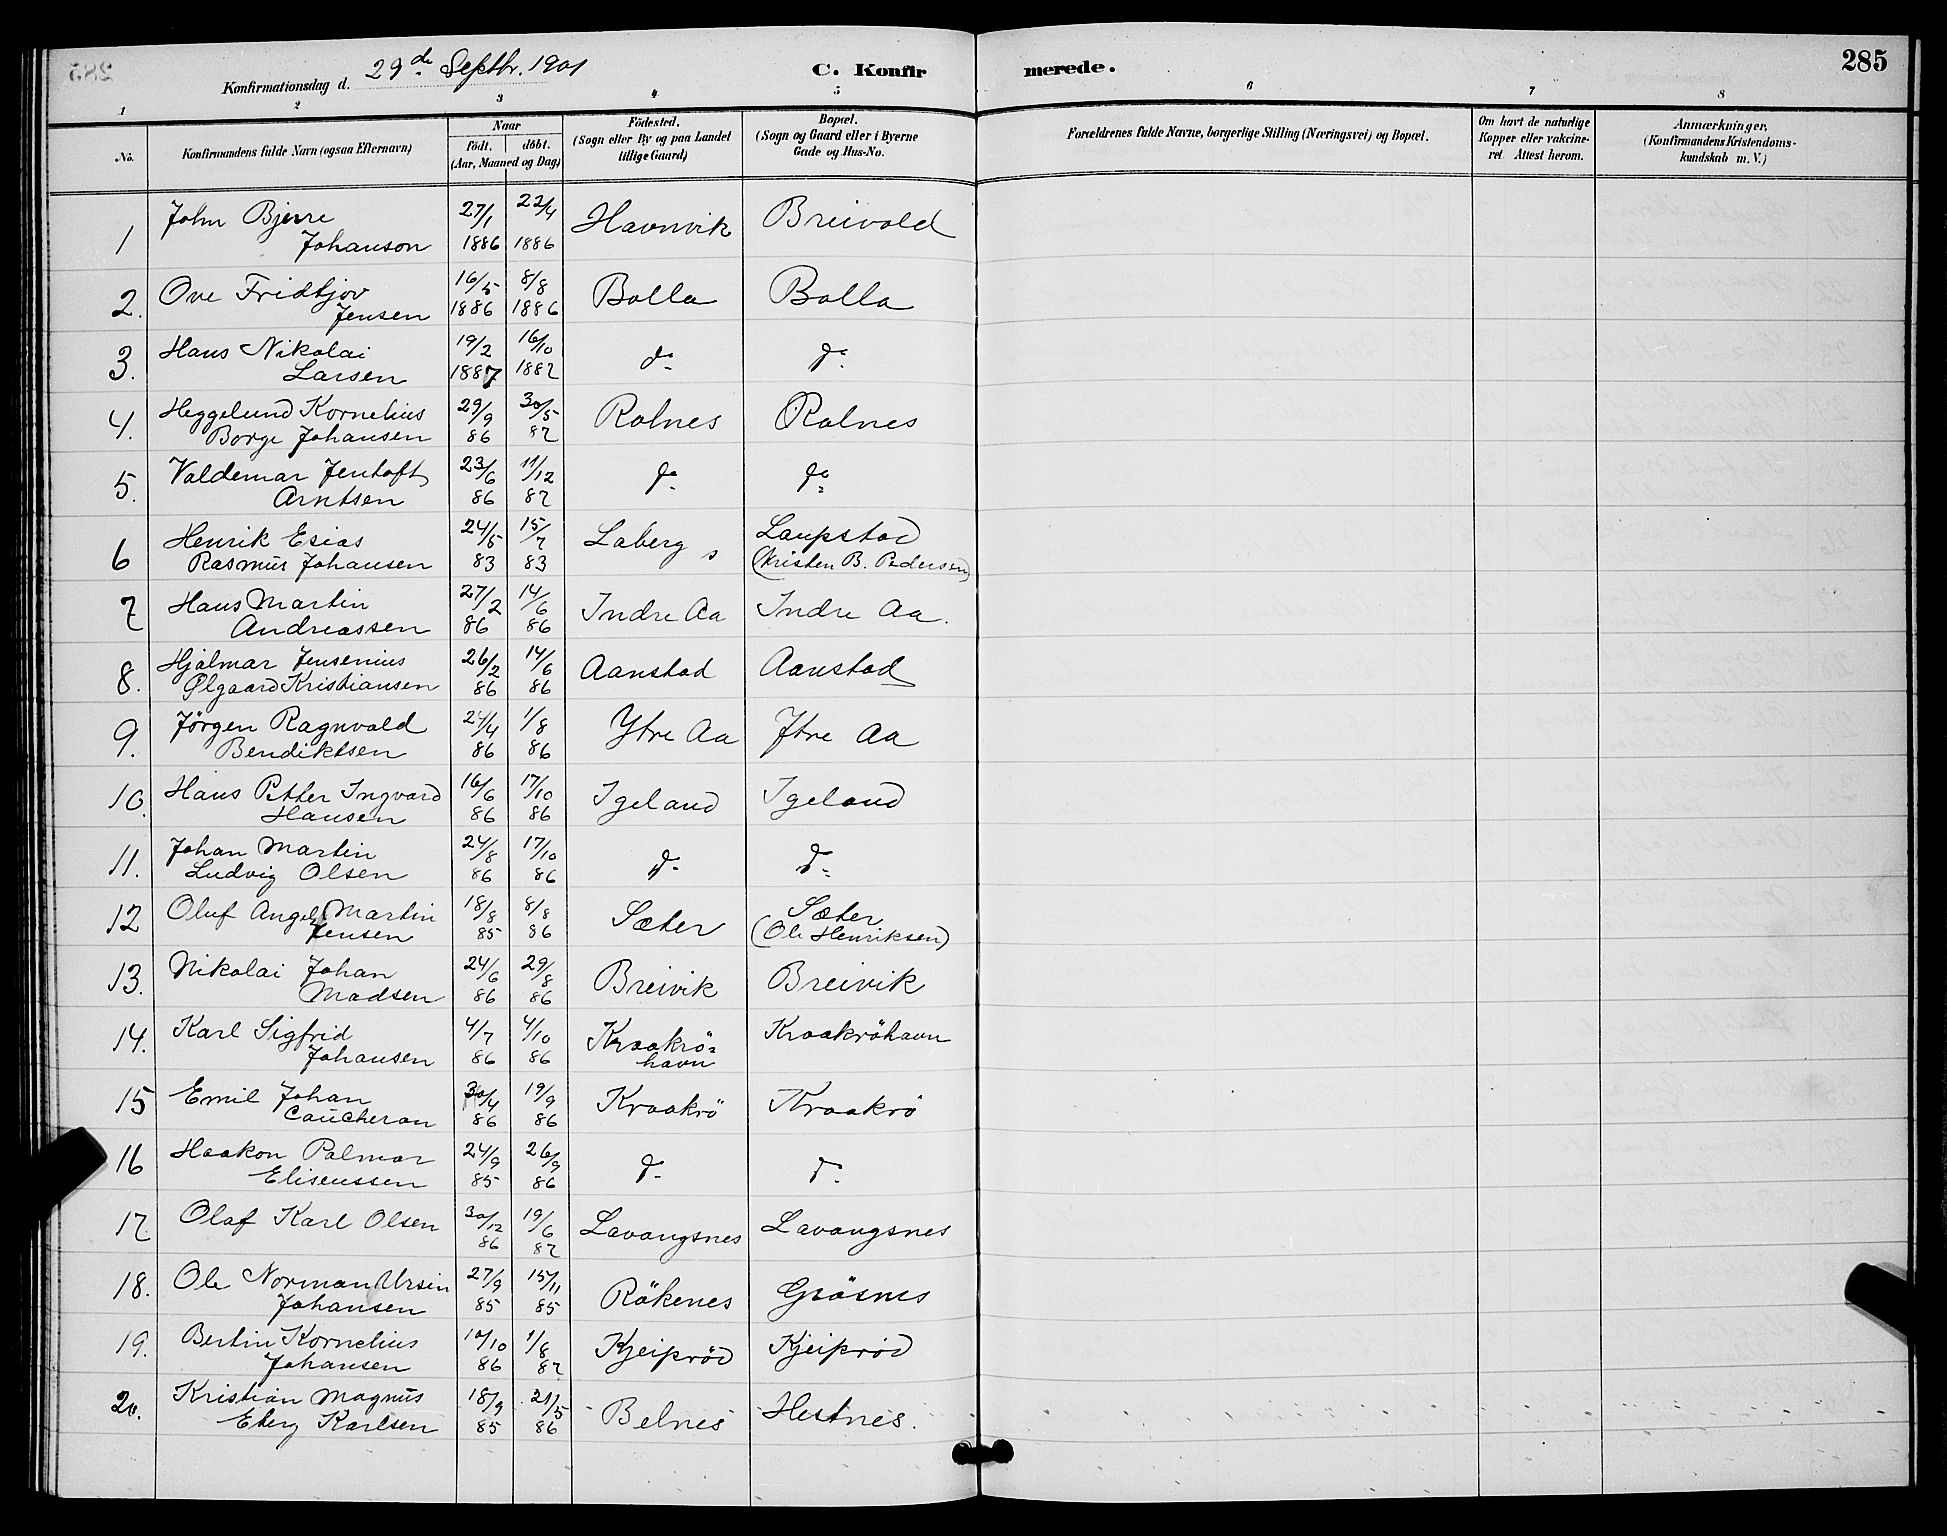 285
Konfirmationsdag d. 29de Septbr. 1901
C. Konfirmerede.
1 2 3 4 5 6 7 8
No. Konfirmandens fulde Navn (ogsaa Efternavn) Naar født. døbt. (Aar, Maaned og Dag) Fødested. (Sogn eller By og paa Landet tillige Gaard) Bopæl. (Sogn og Gaard eller i Byerne Gade og Hus-No. Forældrenes fulde Navne, borgerlige Stilling (Næringsvei) og Bopæl. Om havt de naturlige Kopper eller vakcineret Attest herom. Anmærkninger, (Konfirmandens Kristendomskundskab m. V.)
1 John Bjerre 27/1 22/4 Havnvik Breivold
Johanson 1886 1886
2. Ove Fridtjov 16/5 8/8 Bolla Bolla
Jensen 1886 1886
3. Hans Nikolai 19/2 16/10 do do
Larsen 1887 1887
4. Heggelund Kornelius 29/9 30/5 Rolnes Rolnes
Borge Johansen 86 87
5. Valdemar Jentoft 23/6 11/12 do do
Arntsen 86 87
6 Henrik Esias 24/5 15/7 Laberg Laupstad
Rasmus Johansen 83 83 (Kristen B. Pedersen)
7 Hans Martin 27/2 14/6 Indre Aa Indre Aa.
Andreassen 86 86
8. Hjalmar Jensenius 26/2 14/6 Aanstad Aanstad
Ølgaard Kristiansen 86 86
9. Jörgen Ragnvald 24/4 1/8 Ytre Aa Ytre Aa
Bendiktsen 86 86
10. Hans Petter Ingvard 16/6 17/10 Igeland Igeland
Hansen 86 86
11. Johan Martin 24/8 17/10 do do
Ludvig Olsen 86 86
12 Oluf Angel Martin 18/8 8/8 Sæter Sæter
Jensen 85 86 (Ole Henriksen)
13. Nikolai Johan 24/6 29/8 Breivik Breivik
Madsen 86 86
14. Karl Sigfrid 4/7 4/10 Kraakrö= Kraakröhavn
Johansen 86 86 havn
15 Emil Johan 30/4 19/9 Kraakrö Kraakrö
Caucheron 86 86
16 Haakon Palmar 24/9 26/9 do do
Eliseussen 85 86
17 Olaf Karl Olsen 30/12 19/6 Lavangsnes Lavangsnes
86 87
18. Ole Norman Ursin 27/9 15/11 Rökenes Grösnes
Johansen 85 85
19. Bertin Kornelius 10/10 1/8 Kjeipröd Kjeipröd
Johansen 86 87
20. Kristian Magnus 18/9 21/5 Belnes Hestnes.
Karlsen 85 86